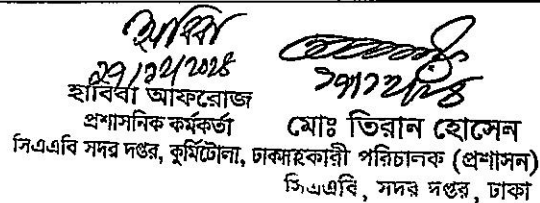 হাবিবা
২৭/১২/২০২৪
হাবিবা আফরোজ
প্রশাসনিক কর্মকর্তা
সিএএবি সদর দপ্তর, কুর্মিটোলা, ঢাকা
মোঃ তিরান হোসেন
সহকারী পরিচালক (প্রশাসন)
সিএএবি, সদর দপ্তর, ঢাকা